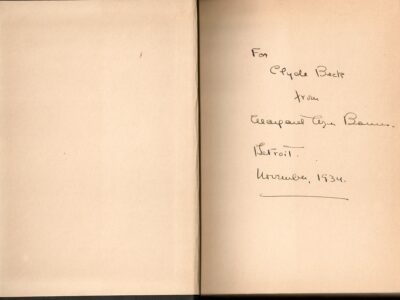 For
Clyde Beck
from
Margaret Ayer Barnes.
Detroit.
November, 1934.